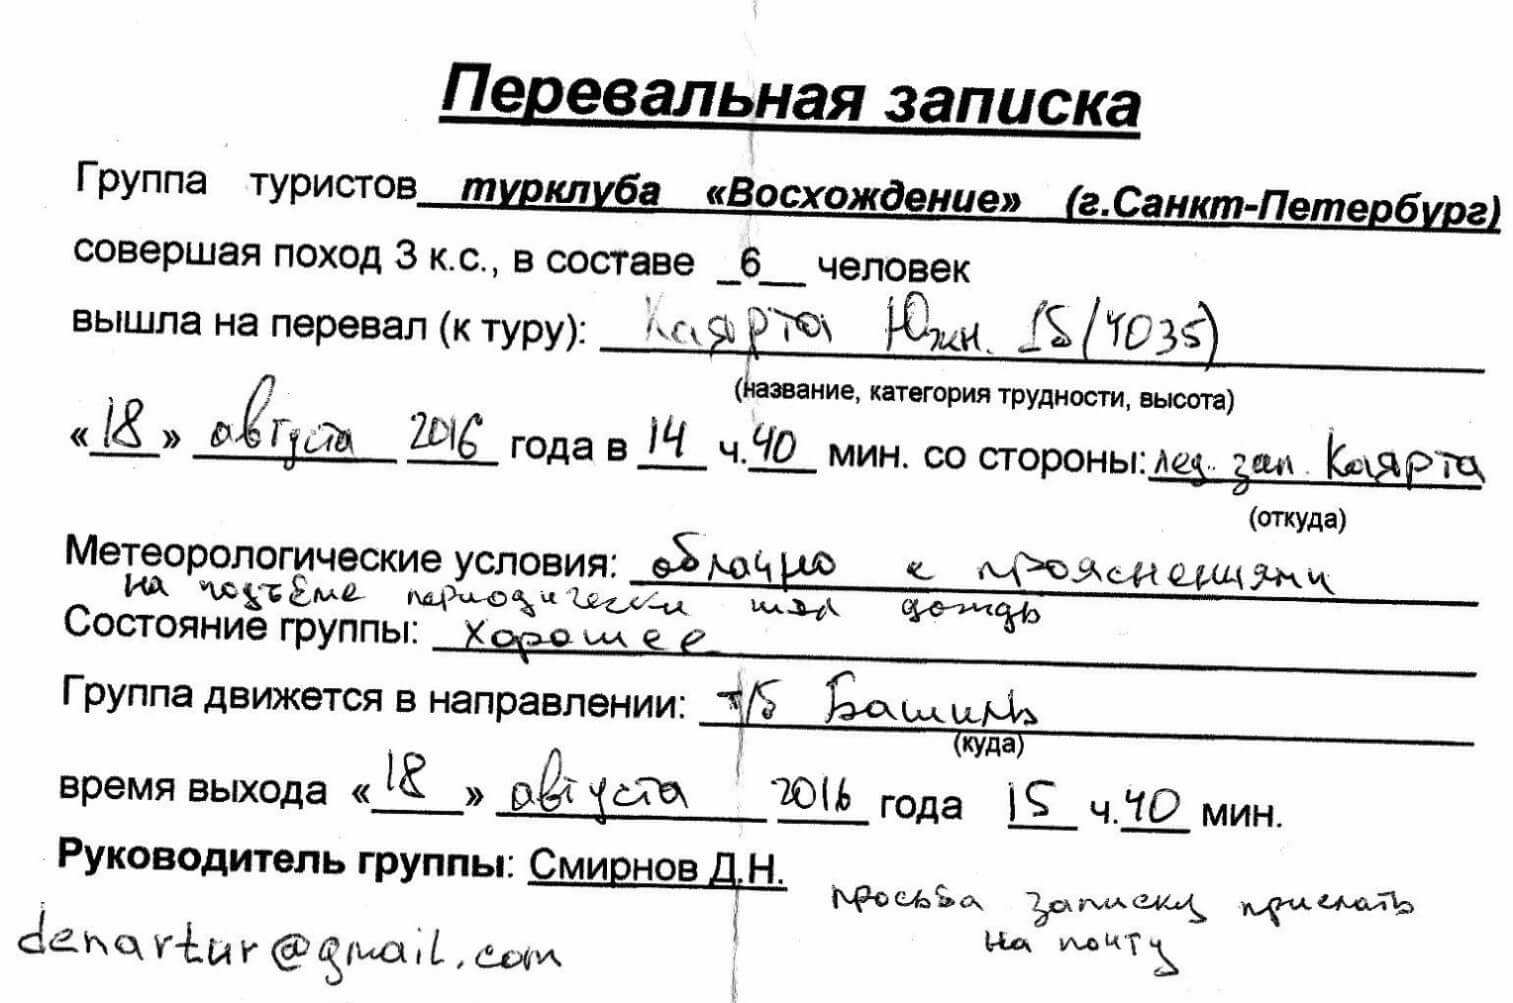 Перевальная записка
Группа туристов турклуба «Восхождение» (г.Санкт-Петербург)
совершая поход 3 к.с., в составе _6__ человек
вышла на перевал (к туру): Каярта Южн. 1Б (4035)
(название, категория трудности, высота)
«18» августа 2016 года в 14 ч.40 мин. со стороны: лед. зап. Каярта
(откуда)
Метеорологические условия: облачно с прояснениями
на подъёме периодически шёл дождь
Состояние группы: хорошее
Группа движется в направлении: т/б Башиль
(куда)
время выхода «18» августа 2016 года 15 ч.40 мин.
Руководитель группы: Смирнов Д.Н.
просьба записку прислать
на почту
denartur@gmail.com